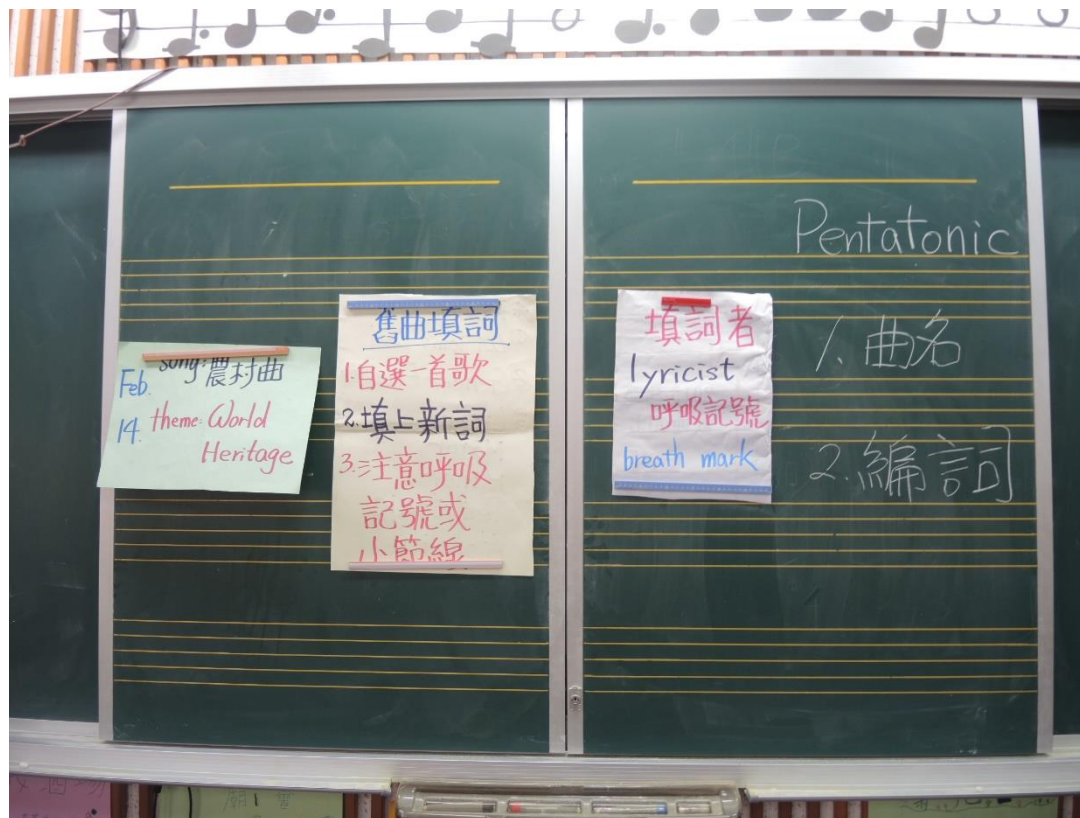 Feb.
song: 農村曲
14. theme: World
Heritage
舊曲填詞
1.自選一首歌
2.填上新詞
3.注意呼吸
記號或
小節線
填詞者
lyricist
呼吸記號
breath mark
Pentatonic
1. 曲名
2. 編詞